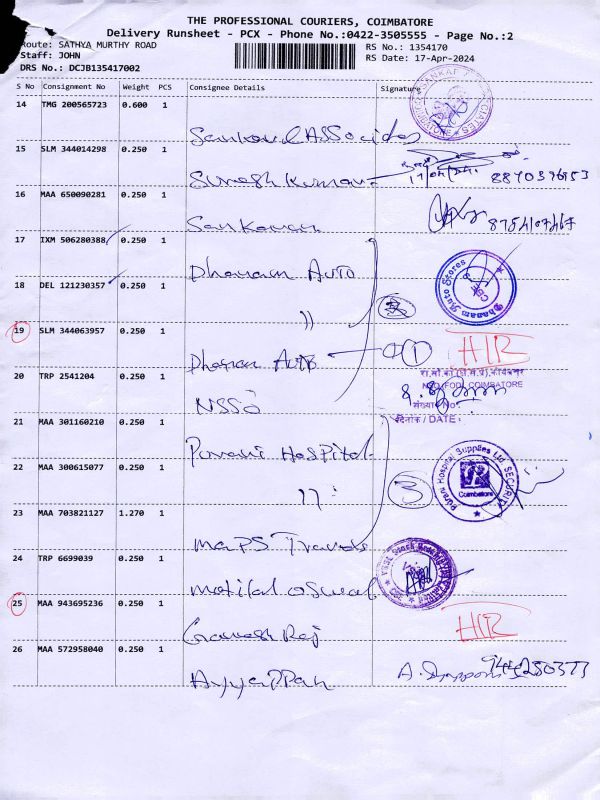 THE PROFESSIONAL COURIERS, COIMBATORE
Delivery Runsheet - PCX - Phone No.:0422-3505555 - Page No.:2
Route: SATHYA MURTHY ROAD
RS No.: 1354170
Staff: JOHN
RS Date: 17-Apr-2024
DRS No.: DCJB135417002
S No Consignment No Weight PCS Consignee Details Signature
14 TMG 200565723 0.600 1
Sankaral Associates
15 SLM 344014298 0.250 1
Suresh Kumar
17/04/24. 8870396953
16 MAA 650090281 0.250 1
Sankaran
17 IXM 506280388 0.250 1
Dhanam Auto
Dhanam Auto Stores
18 DEL 121230357 0.250 1
"
19 SLM 344063957 0.250 1
Dhanam Auto 1 HR
COIMBATORE
20 TRP 2541204 0.250 1
NSSO
संख्या/No.
दिनांक / DATE:
21 MAA 301160210 0.250 1
Purani Hospital
Purani Hospital Supplies Ltd SECURITY
Coimbatore
22 MAA 300615077 0.250 1
" 3
23 MAA 703821127 1.270 1
MaPS Travels
24 TRP 6699039 0.250 1
Motilal Oswal
25 MAA 943695236 0.250 1
Ganesh Raj
HR
26 MAA 572958040 0.250 1
Ayyappan